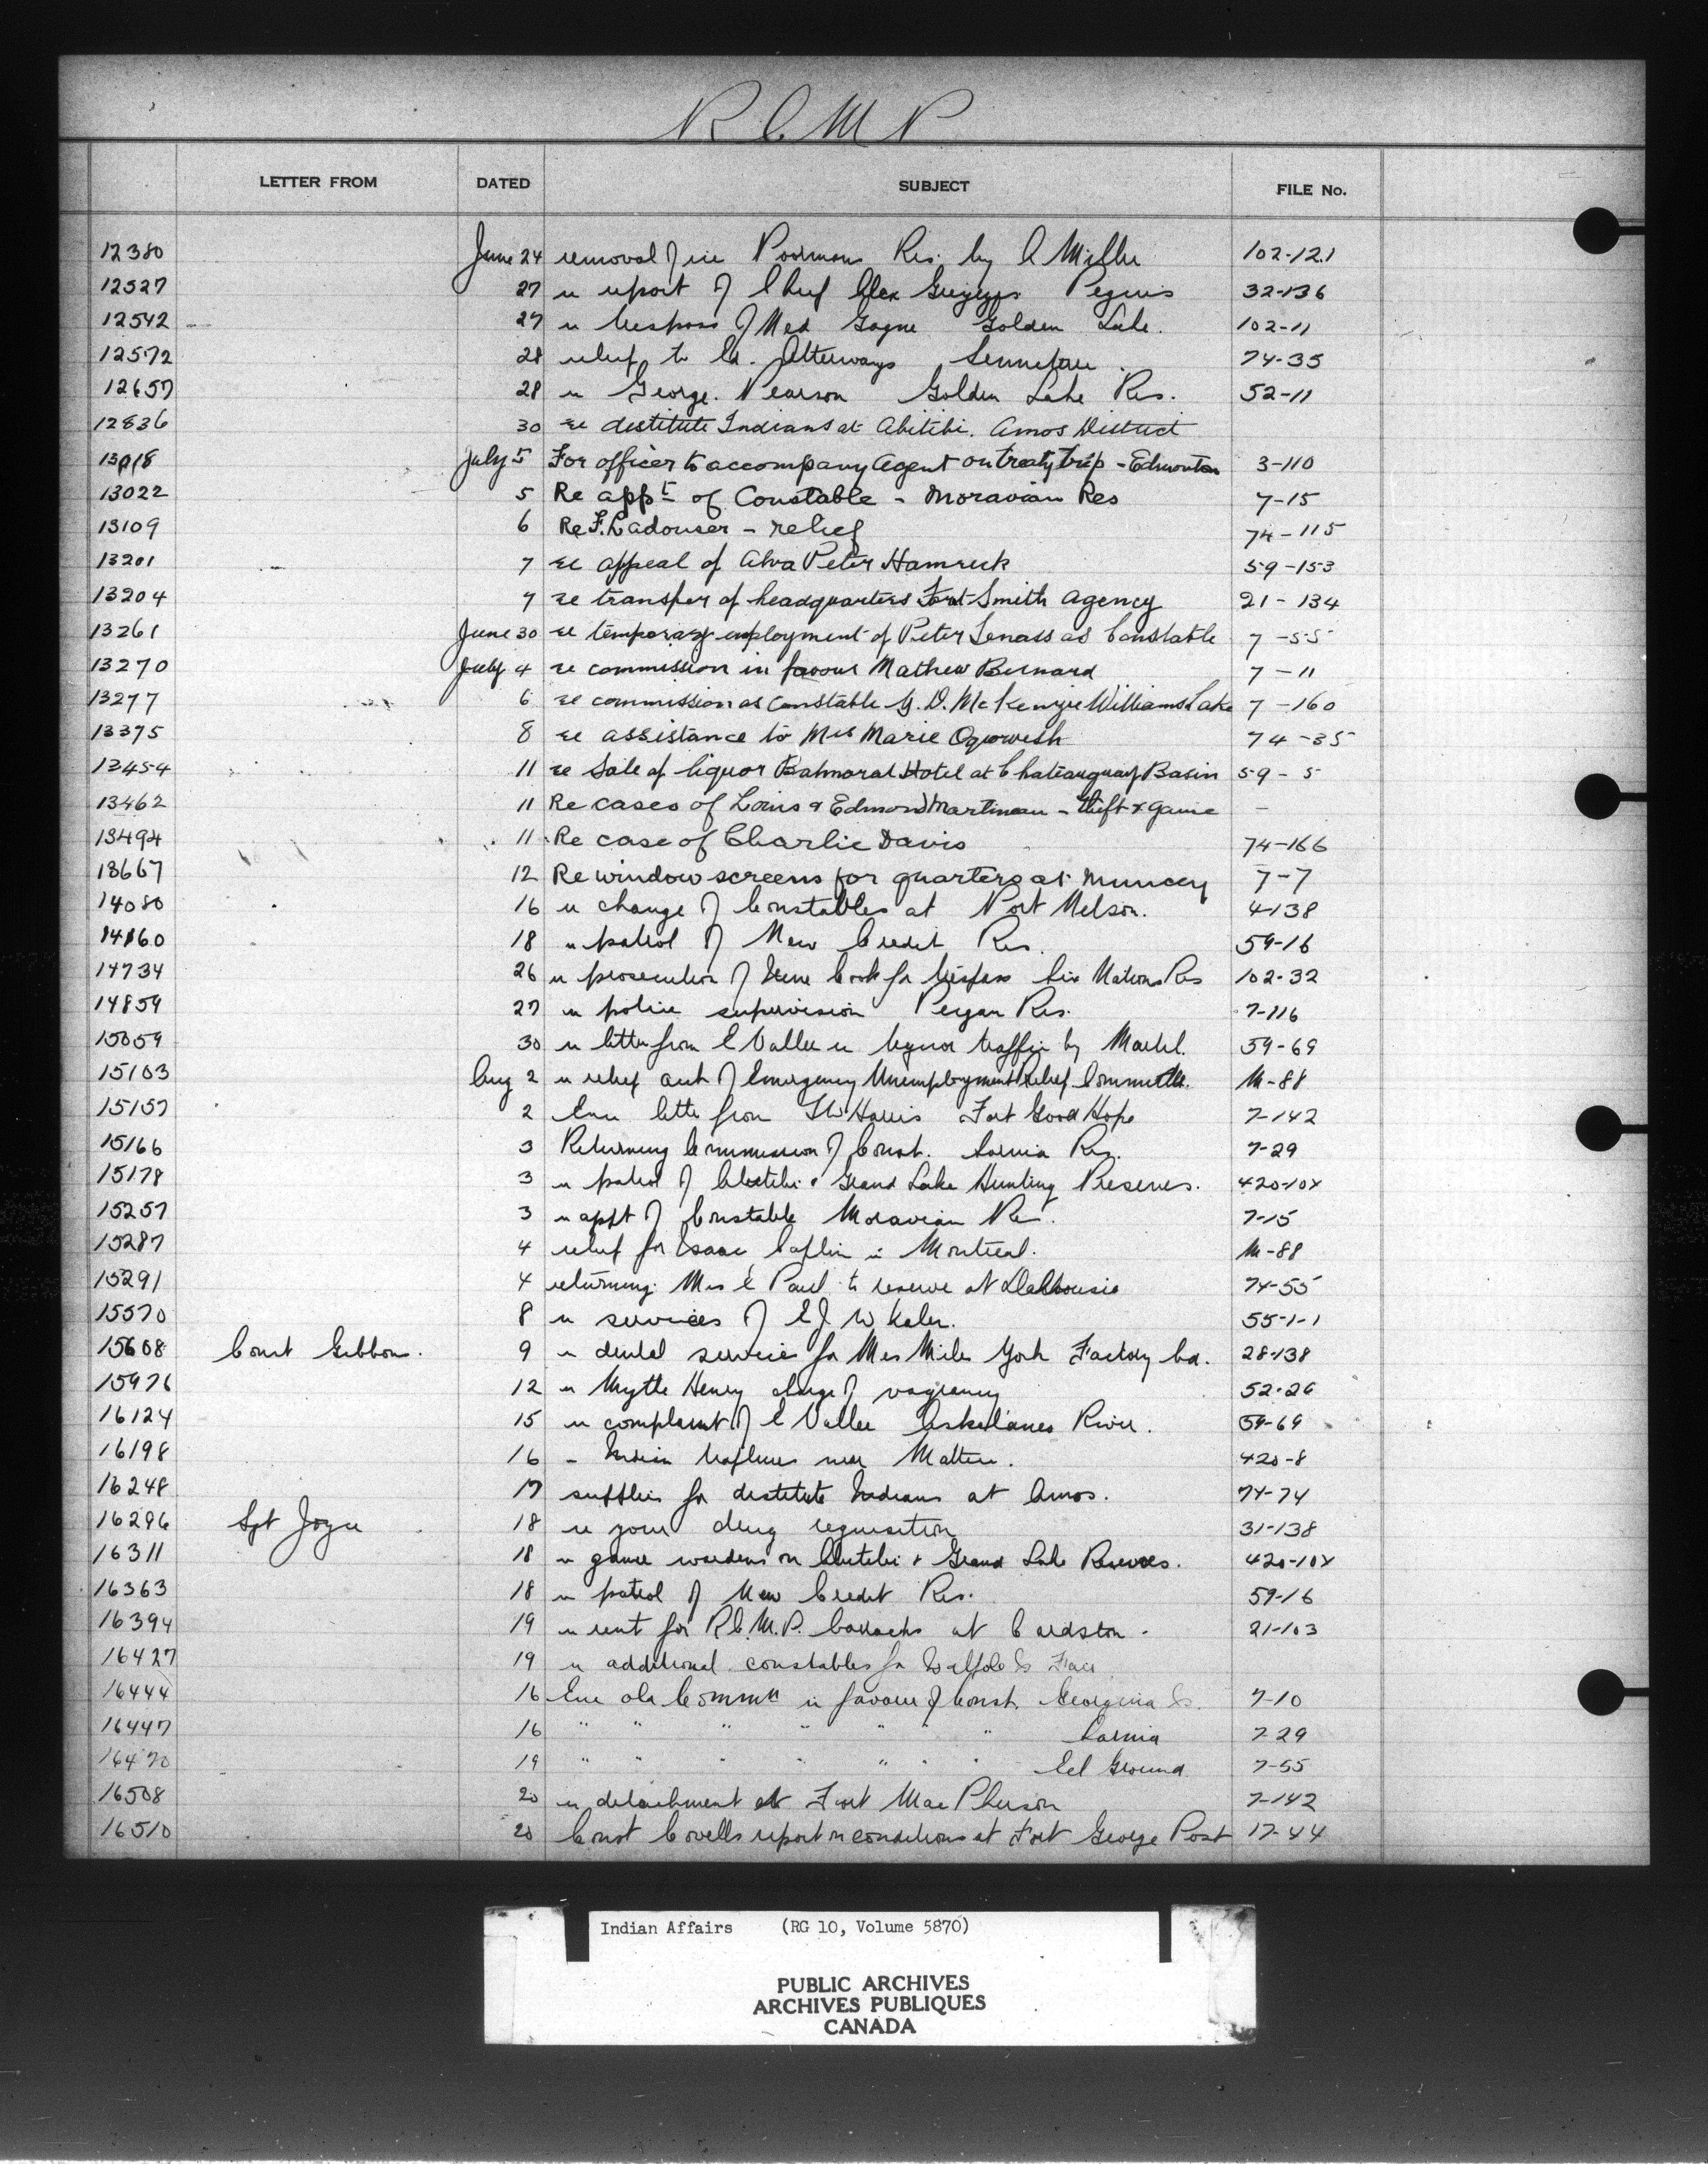 R C M P
LETTER FROM DATED SUBJECT FILE No.
12380 June 24 removal of ice Poormans Res. by C Miller 102-121
12527 27 re report of Chief Alex Peguis 32-136
12542 27 re trespass of Med Gagne Golden Lake. 102-11
12572 28 relief to Senneterre 74-35
12657 28 re George Pearson Golden Lake Res. 52-11
12836 30 re destitute Indians at Abitibi. Amos District
13018 July 5 For officer to accompany Agent on treaty trip - Edmonton 3-110
13022 5 Re appt of Constable - Moravian Res 7-15
13109 6 Re F. Ladouser - relief 74-115
13201 7 re appeal of Alva Peter Hamruck 59-153
13204 7 re transfer of headquarters Fort Smith Agency 21-134
13261 June 30 re temporary employment of Peter Lenass as Constable 7-55
13270 July 4 re commission in favour Mathew Bernard 7-11
13277 6 re commission as Constable G. D. McKenzie Williams Lake 7-160
13375 8 re assistance to Mrs Marie 74-35
13454 11 re sale of liquor Balmoral Hotel at Chateauguay Basin 59-5
13462 11 Re cases of Louis & Edmond Martineau - theft & game –
13494 11 Re case of Charlie Davis 74-166
13667 12 Re window screens for quarters at Muncey 7-7
14080 16 re change of Constables at Port Nelson. 4-138
14160 18 re patrol of New Credit Res. 59-16
14734 26 re prosecution of Cook for trespass Six Nations Res 102-32
14859 27 re police supervision Peigan Res. 7-116
15059 30 re letter from E Vallee re liquor traffic by Martel. 59-69
15103 Aug 2 re relief acct of Emergency Unemployment Relief Committee. M-88
15157 2 Enc letter from T W Harris Fort Good Hope 7-142
15166 3 Returning Commission of Const. Sarnia Res. 7-29
15178 3 re patrol of Abitibi & Grand Lake Hunting Preserves. 420-10X
15257 3 re appt of Constable Moravian Res. 7-15
15287 4 relief for Isaac in Montreal. M-88
15291 4 returning Mrs E Paul to reserve at Dalhousie 74-55
15570 8 re services of E J W Kaler. 55-1-1
15608 Const Gibbons. 9 re dental services for Mrs Miles York Factory bd. 28-138
15976 12 re Myrtle Henry charge of vagrancy 52-26
16124 15 re complaint of E Vallee River. 59-69
16198 16 - Indian trappers near Mattice. 420-8
16248 17 supplies for destitute Indians at Amos. 74-74
16296 Sgt Joyce 18 re your drug requisition 31-138
16311 18 re game wardens on Abitibi & Grand Lake Reserves. 420-10X
16363 18 re patrol of New Credit Res. 59-16
16394 19 re rent for R.C.M.P. barracks at Cardston. 21-103
16427 19 re additional constables for Walpole Is
16444 16 Enc old Commn in favour of Const. Georgina Is. 7-10
16447 16 " " " " " " " Sarnia 7-29
16470 19 " " " " " " " Eel Ground 7-55
16508 20 re detachment at Fort MacPherson 7-142
16510 20 Const Covells report on conditions at Fort George Post 17-44
Indian Affairs (RG 10, Volume 5870)
PUBLIC ARCHIVES
ARCHIVES PUBLIQUES
CANADA